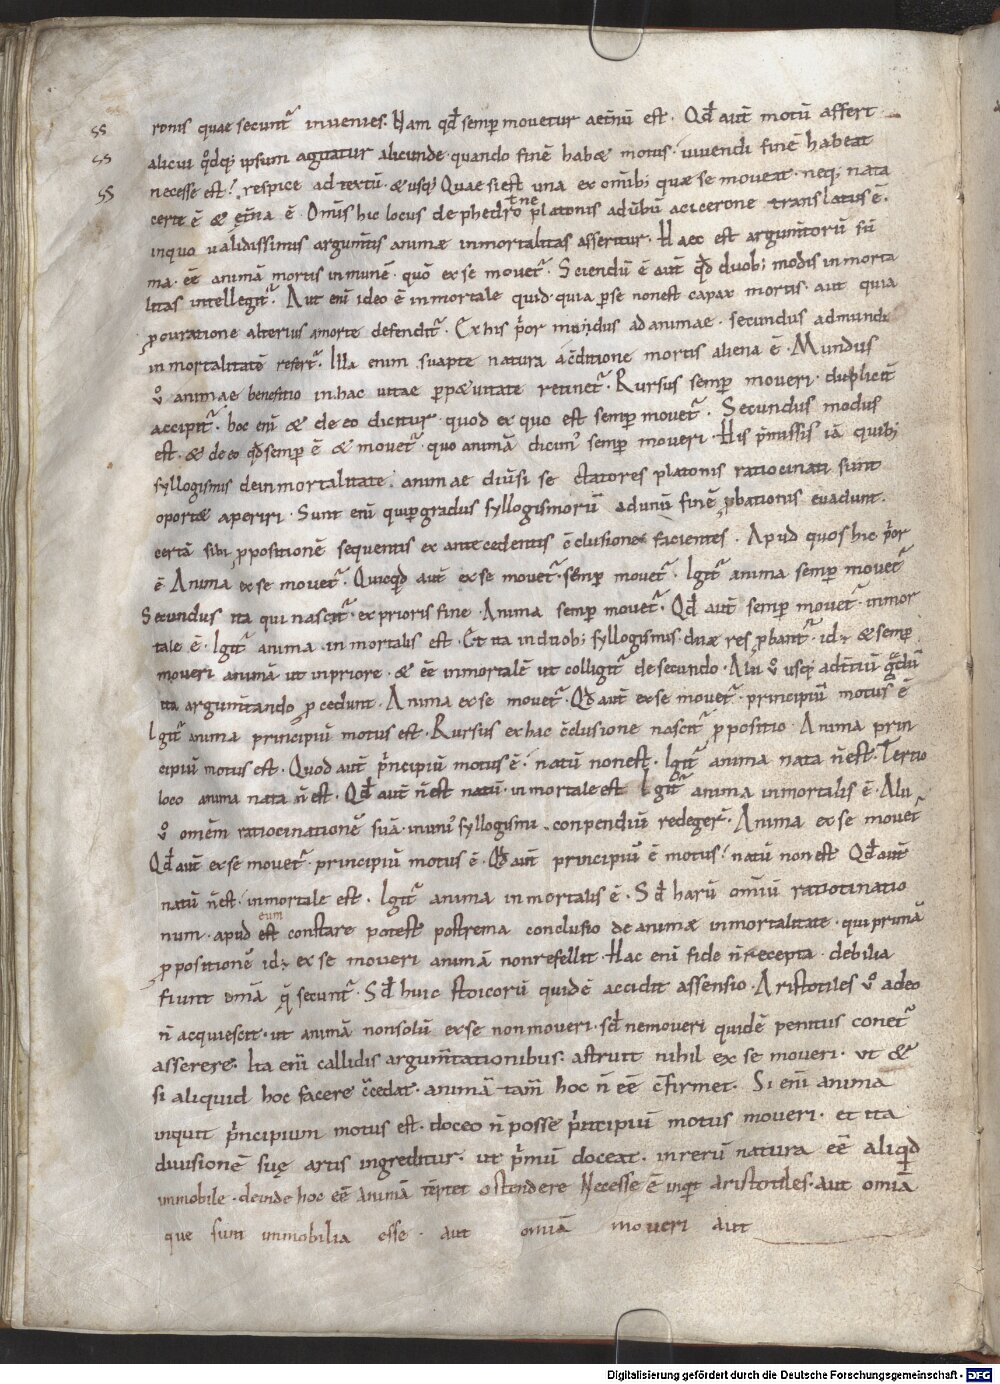 ss ronis quae secunt᷑ inuenies. Nam qđ semp mouetur aetn̄ū est. Qđ aut̄ motū affert
ss alicui q̊dq; ipsum agitatur aliunde quando finē habæ motus. uiuendi finē habeat
ss necesse est. respice ad textū. & usq; Quae si est una ex om̄ib; quæ se moueat. neq; nata
certe ē & et̄na ē. Om̄s hic locus de phedro platonis ad ūbū a cicerone translatus ē.
inquo ualidissimis argum̄tis animæ inmortalitas asseritur. Haec est argum̄torū sū
ma. eē animā mortis inmunē. quō ex se mouet᷑. Sciendū ē aut̄ qđ duob; modis inmorta
litas intellegit᷑. Aut enī ideo ē inmortale quid. quia p se non est capax mortis. aut quia
pcuratione alterius amorte defendit᷑. Ex his p̄or modus ad animae. secundus ad mundi
inmortalitatē refert᷑. Illa enim suapte natura ac̄ditione mortis aliena ē. Mundus
ů animae benefitio in hac uitae ppætuitate retinet᷑. Rursus semp moueri. duplicit̄
accipit᷑. hoc enī & de eo dicitur quod ex quo est semp mouet᷑. Secundus modus
est. & de eo qđ semp ē & mouet᷑. quo animā dicim᷒ semp moueri. His p̄missis iā quib;
syllogismis de inmortalitate. animae diūsi se ctatores platonis ratiocinati sunt
oportæ aperiri. Sunt enī qui p gradus syllogismorū ad unū finē pbationis euadunt.
certā sibi ppositionē sequentis ex antecedentis c̄clusione facientes. Apud quos hic p̄or
ē Anima ex se mouet᷑. Quicqđ aut̄ ex se mouet᷑. semp mouet᷑. Igit᷑ anima semp mouet᷑
Secundus ita qui nascit᷑. ex prioris fine. Anima semp mouet᷑. Qđ aut̄ semp mouet᷑. inmor
tale ē. Igit᷑ anima inmortalis est. Et ita in duob; syllogismis duæ res pbant᷑. id ÷ & semp
moueri animā ut in priore. & eē inmortalē ut colligit᷑ de secundo. Alii ů usq; ad t̄ciū gradū
ita argum̄tando pcedunt. Anima ex se mouet᷑. Qđ aut̄ ex se mouet᷑. principiū motus ē
Igit᷑ anima principiū motus est. Rursus ex hac c̄clusione nascit᷑ ppositio. Anima prin
cipiū motus est. Quod aut̄ p̄ncipiū motus ē. natū non est. Igit᷑ anima nata n̄ est. Tertio
loco anima nata n̄ est. Qđ aut̄ n̄ est natū. inmortale est Igit᷑ anima inmortalis ē. Alii
ů omēm ratiocinationē suā. in uni᷒ syllogismi conpendiū redeger̄. Anima ex se mouet᷑
Qđ aut̄ ex se mouet᷑. principiū motus ē. Qđ aut̄ principiū ē motus. natū non est Qđ aut̄
natū n̄ est. inmortale est. Igit᷑ anima inmortalis ē. Sđ harū om̄iū ratiotinatio
eum
num. apud est constare potest postrema conclusio de animæ inmortalitate. qui primā
ppositionē id ÷ ex se moueri animā non refellit. Hac enī fide n̄ recepta. debilia
fiunt om̄a q̄ secunt᷑. Sđ huic stoicorū quidē accidit assensio. Aristotiles ů adeo
n̄ acquiescit. ut animā nonsolū ex se non moueri. sđ ne moueri quidē penitus conet᷑
asserere. Ita enī callidis argum̄tationibus. astruit nihil ex se moueri. ut &
si aliquid hoc facere c̄cedat. animā tam̄ hoc n̄ eē c̄firmet. Si enī anima
inquit p̄ncipium motus est. doceo n̄ posse p̄ncipiū motus moueri. et ita
diuisionē suę artis ingreditur. ut p̄mū doceat. in rerū natura eē aliqđ
inmobile. deinde hoc eē animā tēptet ostendere Necesse ē inqt aristotiles. aut om̄ia
que sunt immobilia esse. aut om̄iā moueri aut
Digitalisierung gefördert durch die Deutsche Forschungsgemeinschaft - DFG